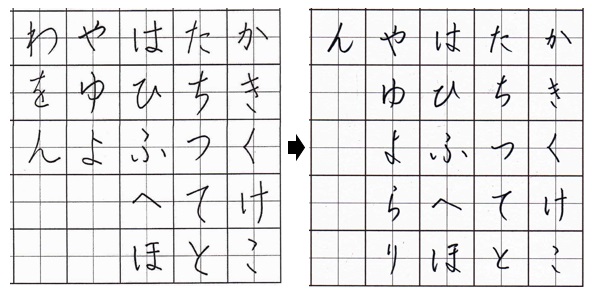 かきくけこ
たちつてと
はひふへほ
やゆよ
わをん
かきくけこ
たちつてと
はひふへほ
やゆよらり
ん